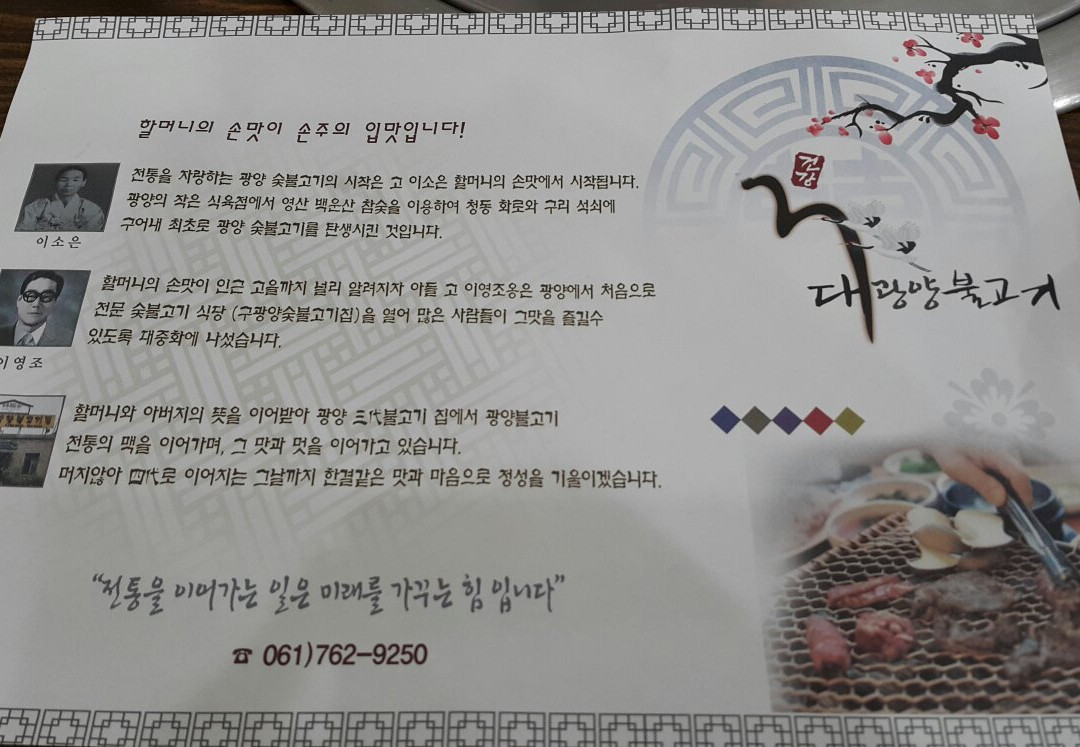 할머니의 손맛이 손주의 입맛입니다!
전통을 자랑하는 광양 숯불고기의 시작은 고 이소은 할머니의 손맛에서 시작됩니다.
광양의 작은 식육점에서 영산 백운산 참숯을 이용하여 청동 화로와 구리 석쇠에
구어내 최초로 광양 숯불고기를 탄생시킨 것입니다.
이소은
할머니의 손맛이 인근 고을까지 널리 알려지자 아들 고 이영조옹은 광양에서 처음으로
전문 숯불고기 식당 (구광양숯불고기집)을 열어 많은 사람들이 그맛을 즐길수
있도록 대중화에 나섰습니다.
이영조
할머니와 아버지의 뜻을 이어받아 광양 三代불고기 집에서 광양불고기
전통의 맥을 이어가며, 그 맛과 멋을 이어가고 있습니다.
머지않아 四代로 이어지는 그날까지 한결같은 맛과 마음으로 정성을 기울이겠습니다.
“전통을 이어가는 일은 미래를 가꾸는 힘 입니다”
☎ 061)762-9250
대광양불고기